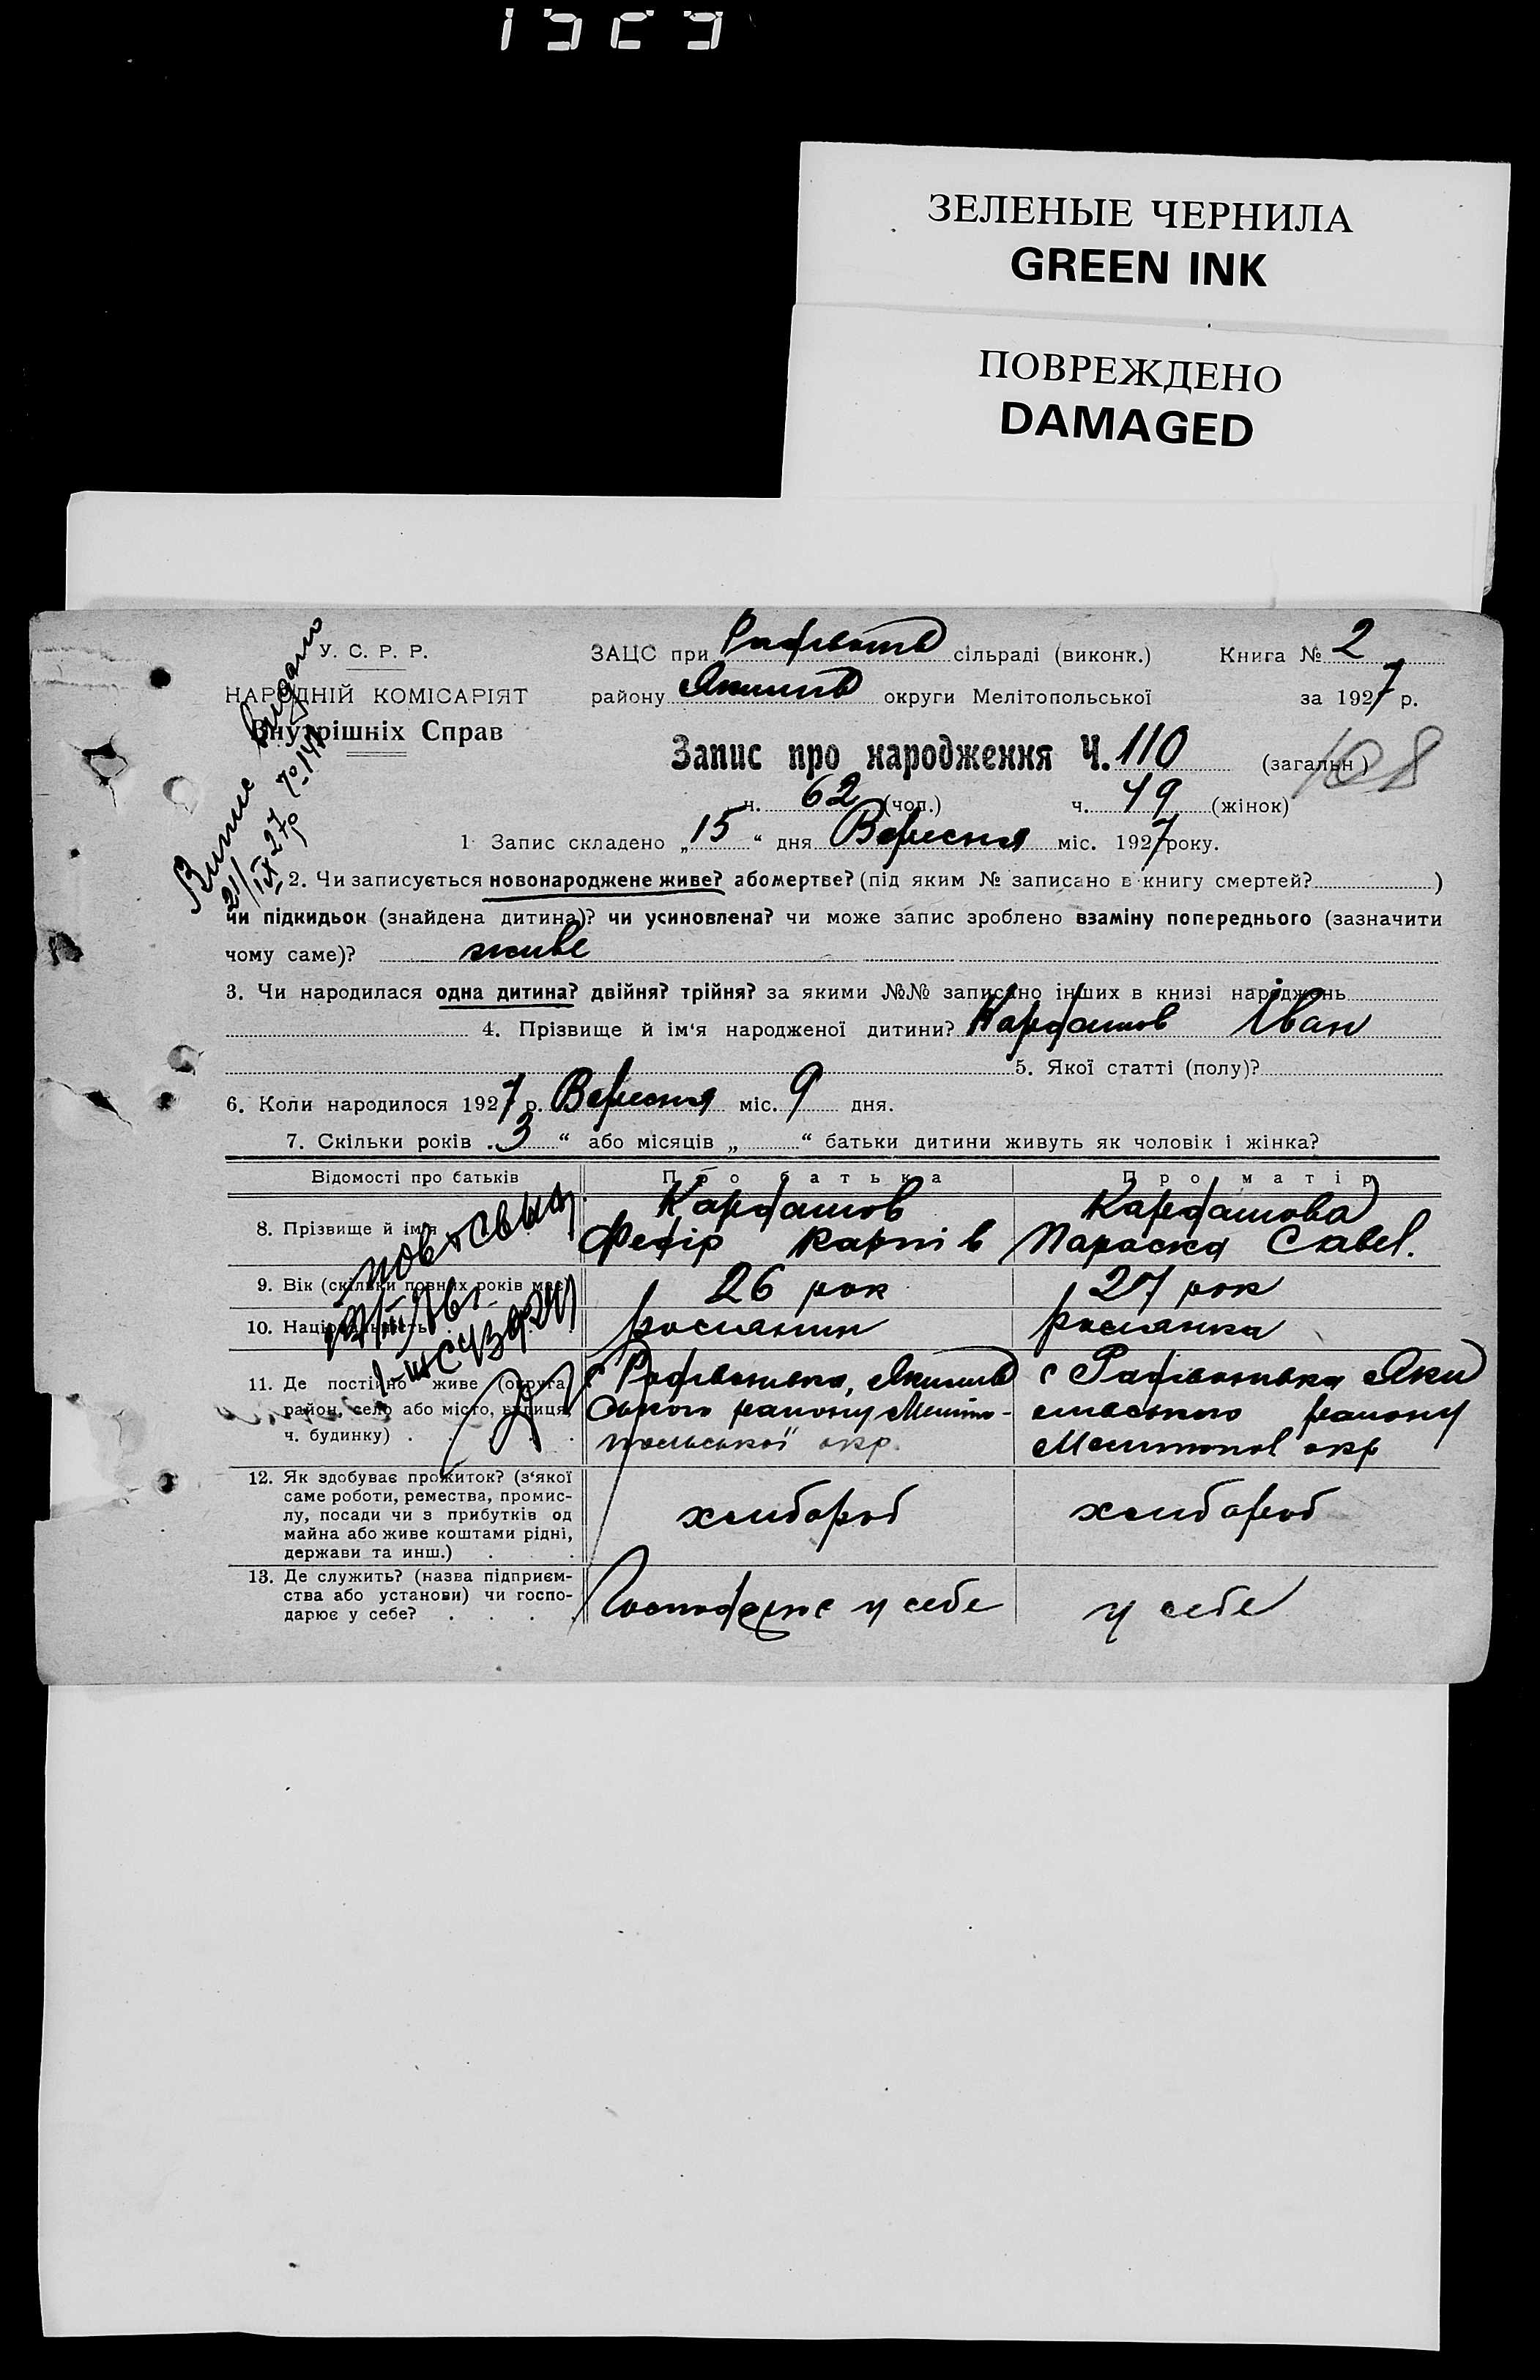 ЗЕЛЕНЫЕ ЧЕРНИЛА
GREEN INK
ПОВРЕЖДЕНО
DAMAGED
У. С. Р. Р.
НАРОДНІЙ КОМІСАРІЯТ
Внутрішніх Справ
ЗАЦС при сільраді (виконк.) Книга № 2
району Якимів округи Мелітопольської за 1927 р.
Запис про народження Ч. 110 (загальн)
108
ч. 62 (чол.) ч. 49 (жінок)
Випис видано
21/IX 27 р.
1. Запис складено „15“ дня Вересня міс. 1927 року.
2. Чи записується новонароджене живе? або мертве? (під яким № записано в книгу смертей? )
чи підкидьок (знайдена дитина)? чи усиновлена? чи може запис зроблено взаміну попереднього (зазначити
чому саме)? живе
3. Чи народилася одна дитина? двійня? трійня? за якими №№ записано інших в книзі народжень
4. Прізвище й ім‘я народженої дитини? Кардашов Іван
5. Якої статті (полу)?
6. Коли народилося 1927 р. Вересня міс. 9 дня.
7. Скільки років „3“ або місяців „ “ батьки дитини живуть як чоловік і жінка?
Відомості про батьків Про батька Про матір
8. Прізвище й ім‘я Кардашов Кардашова
Федір Карпів Параска Савел.
9. Вік (скільки повних років має) 26 рок 27 рок
10. Національність росіянин росіянка
11. Де постійно живе (округа, район, село або місто, вулиця, ч. будинку)
с Радівонівка, Якимів
ського району Меліто-
польської окр.
с Радівонівка Яки
мівського району
Мелитопол окр
12. Як здобуває прожиток? (з‘якої
саме роботи, ремества, промис-
лу, посади чи з прибутків од
майна або живе коштами рідні,
держави та инш.)
хлібороб хлібороб
13. Де служить? (назва підприєм-
ства або установи) чи госпо-
дарює у себе?
Господарює у себе у себе